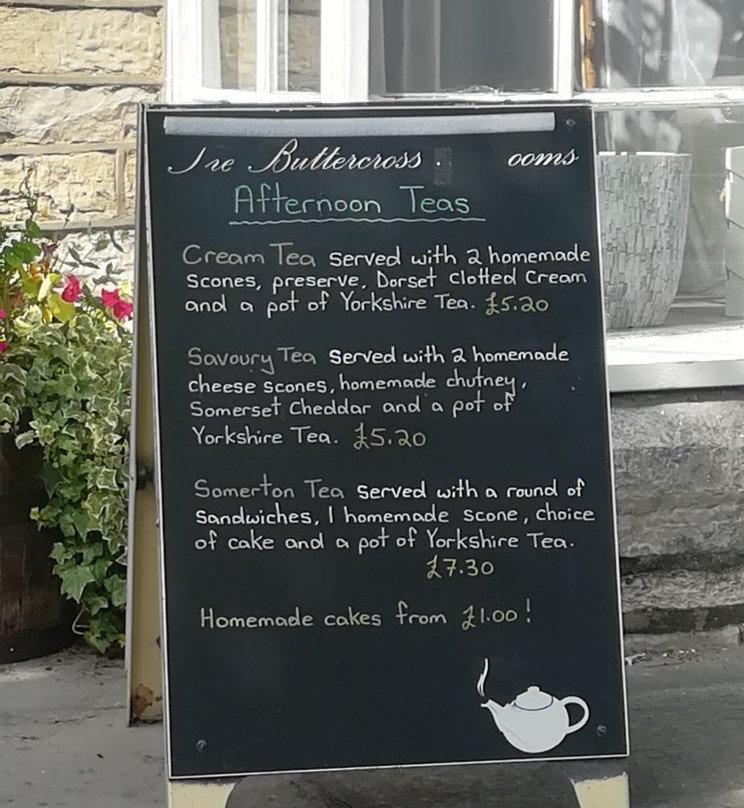 The Buttercross ooms
Afternoon Teas
Cream Tea served with 2 homemade
scones, preserve, Dorset Clotted Cream
and a pot of Yorkshire Tea. £5.20
Savoury Tea served with 2 homemade
cheese scones, homemade chutney,
Somerset Cheddar and a pot of
Yorkshire Tea. £5.20
Somerton Tea served with a round of
sandwiches, 1 homemade scone, choice
of cake and a pot of Yorkshire Tea.
£7.30
Homemade cakes from £1.00!